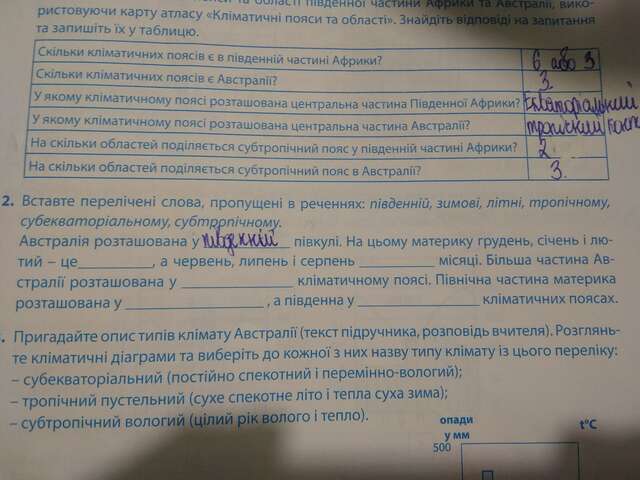 пояси та області південної частини Африки та Австралії, вико-
ристовуючи карту атласу «Кліматичні пояси та області». Знайдіть відповіді на запитання
та запишіть їх у таблицю.
Скільки кліматичних поясів є в південній частині Африки? 6 або 3
Скільки кліматичних поясів є Австралії? 3
У якому кліматичному поясі розташована центральна частина Південної Африки? Екваторіальний
У якому кліматичному поясі розташована центральна частина Австралії? тропічний
На скільки областей поділяється субтропічний пояс у південній частині Африки? 2
На скільки областей поділяється субтропічний пояс в Австралії? 3.
2. Вставте перелічені слова, пропущені в реченнях: південній, зимові, літні, тропічному,
субекваторіальному, субтропічному.
Австралія розташована у південній півкулі. На цьому материку грудень, січень і лю-
тий – це________, а червень, липень і серпень ________ місяці. Більша частина Ав-
стралії розташована у ____________ кліматичному поясі. Північна частина материка
розташована у ____________, а південна у ____________ кліматичних поясах.
. Пригадайте опис типів клімату Австралії (текст підручника, розповідь вчителя). Розглянь-
те кліматичні діаграми та виберіть до кожної з них назву типу клімату із цього переліку:
– субекваторіальний (постійно спекотний і перемінно-вологий);
– тропічний пустельний (сухе спекотне літо і тепла суха зима);
– субтропічний вологий (цілий рік волого і тепло).
опади t°C
у мм
500